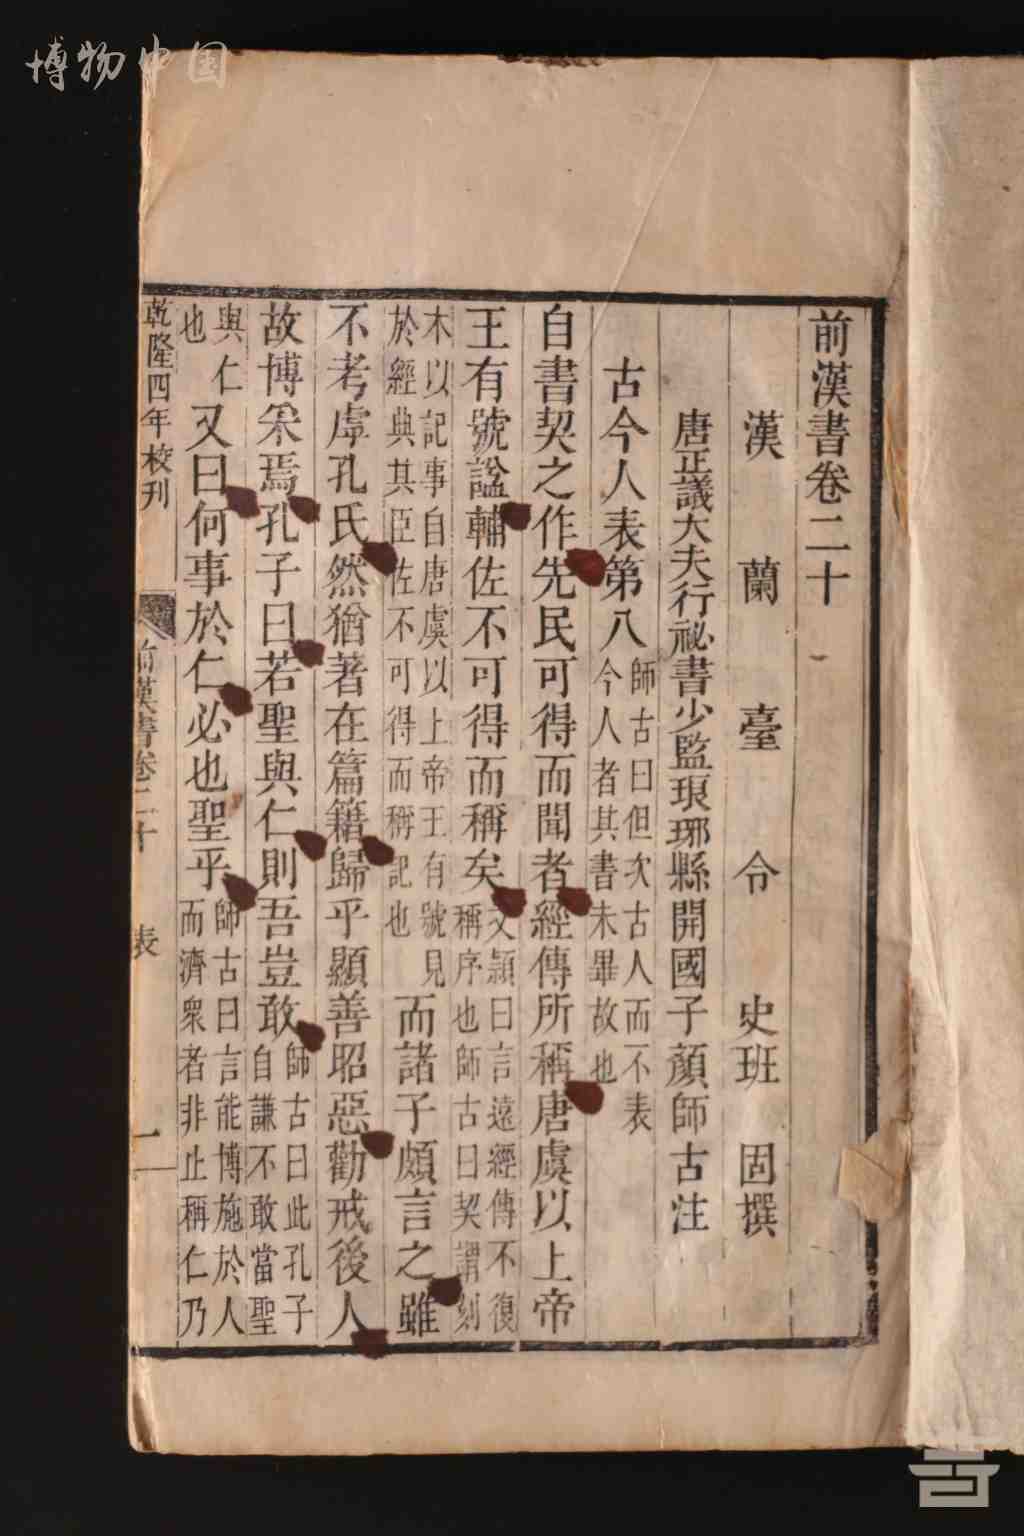 博物中国
前漢書卷二十
漢蘭臺令史班固撰
唐正議大夫行祕書少監琅邪縣開國子顏師古注
古今人表第八師古曰但次古人而不表今人者其書未畢故也
自書契之作先民可得而聞者經傳所稱唐虞以上帝
王有號諡輔佐不可得而稱矣文頴曰言遠經傳不復稱序也師古曰契謂刻
木以記事自唐虞以上帝王有號見於經典其臣佐不可得而稱記也而諸子頗言之雖
不考虖孔氏然猶著在篇籍歸乎顯善昭惡勸戒後人
故博采焉孔子曰若聖與仁則吾豈敢師古曰此孔子自謙不敢當聖
與仁也又曰何事於仁必也聖乎師古曰言能博施於人而濟衆者非止稱仁乃
乾隆四年校刊
前漢書卷二十
表
一